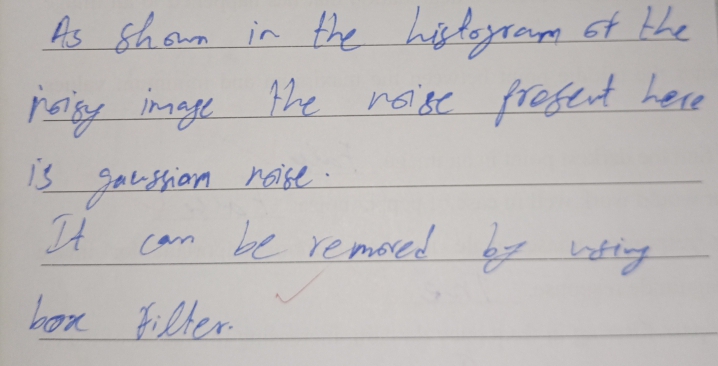 As shown in the histogram of the
noisy image the noise present here
is gaussian noise.
It can be removed by using
box filter.